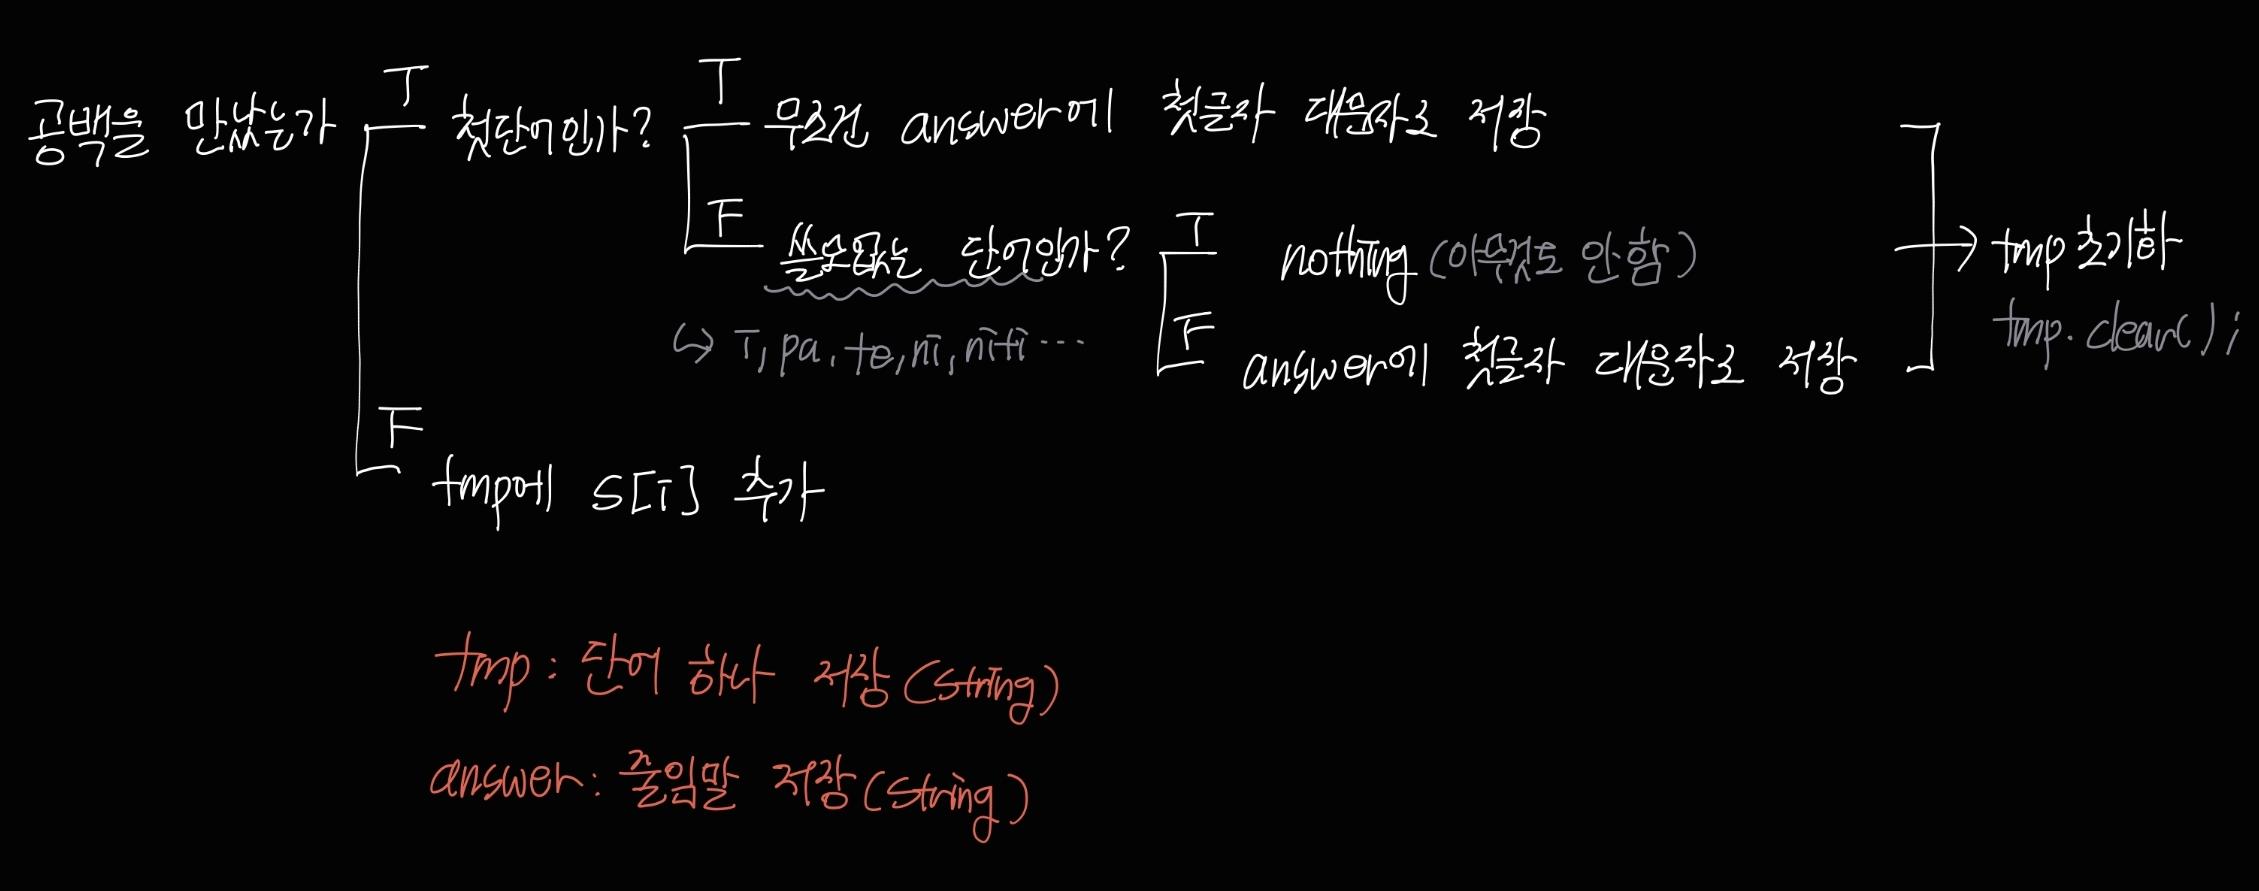 공백을 만났는가 T 첫단어인가? T 무조건 answer에 첫글자 대문자로 저장
F 쓸모없는 단어인가? T nothing (아무것도 안함) → tmp 초기화
↪ i, pa, te, ni, niti ··· F answer에 첫글자 대문자로 저장 tmp.clear();
F tmp에 S[i] 추가
tmp : 단어 하나 저장 (string)
answer : 줄임말 저장 (string)